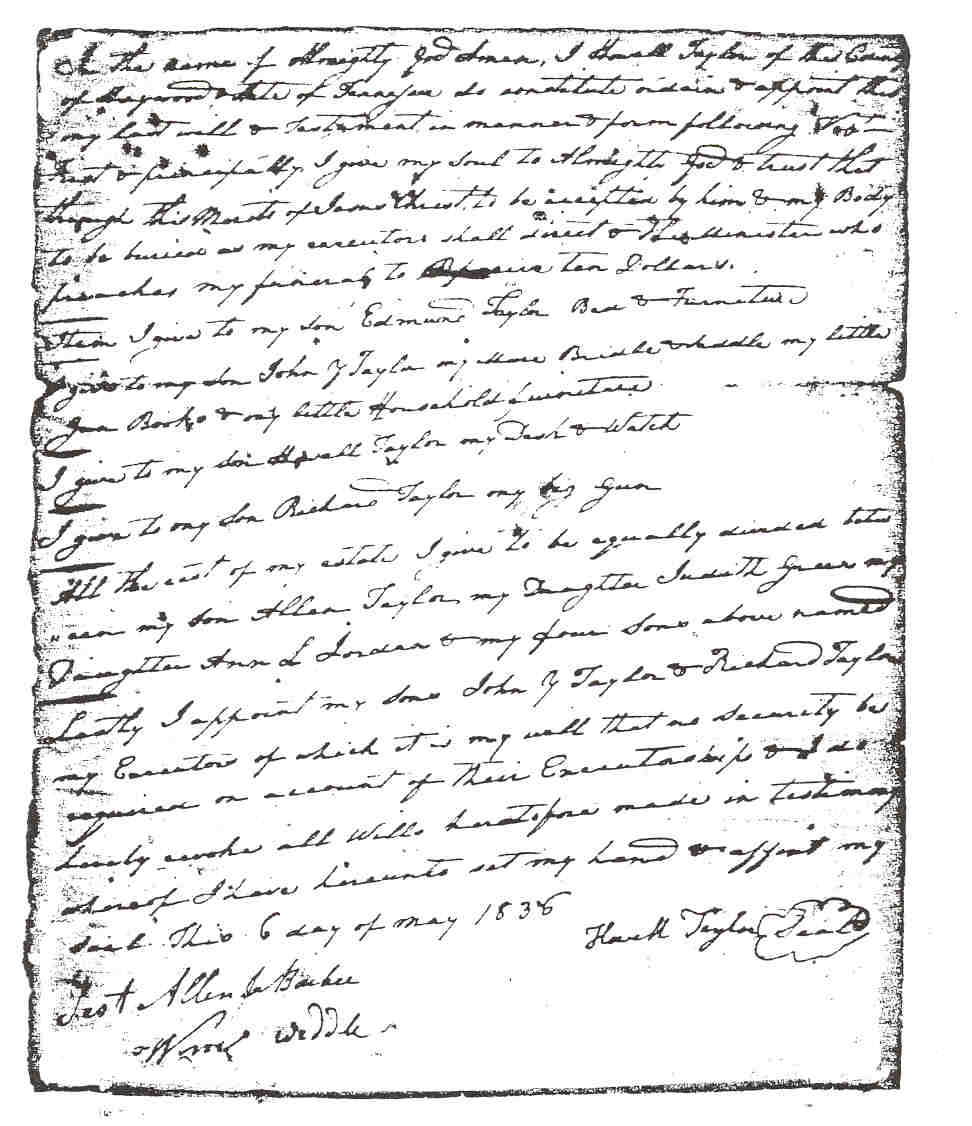 In the name of Almighty God Amen, I Howell Taylor of the County
of Haywood & State of Tennessee do constitute ordain & appoint this
my last will & Testament in manner & form following
first & principally I give my Soul to Almighty God & trust that
through the Merits of Jesus Christ to be accepted by him & my Body
to be buried as my executors shall direct & the Minister who
preaches my funeral to receive ten Dollars.
Item I give to my son Edmund Taylor Bed & Furneture
I give to my son John Y Taylor my Mare Bridle & Saddle my little
Gun Books & my little Household furneture
I give to my son Howell Taylor my Desk & Watch
I give to my son Richard Taylor my big Gun
All the rest of my estate I give to be equally divided betw
een my son Allen Taylor, my Daughter Judith Green my
Daughter Ann L Jordan & my four sons above named
Lastly I appoint my sons John Y Taylor & Richard Taylor
my Executors of which it is my will that no security be
required on account of their Executorship & I do
hereby revoke all Wills heretofore made in testimony
whereof I have hereunto set my hand & affixt my
seal This 6 day of May 1836
Howell Taylor Seal
Test Allen J Barbee
Weddle